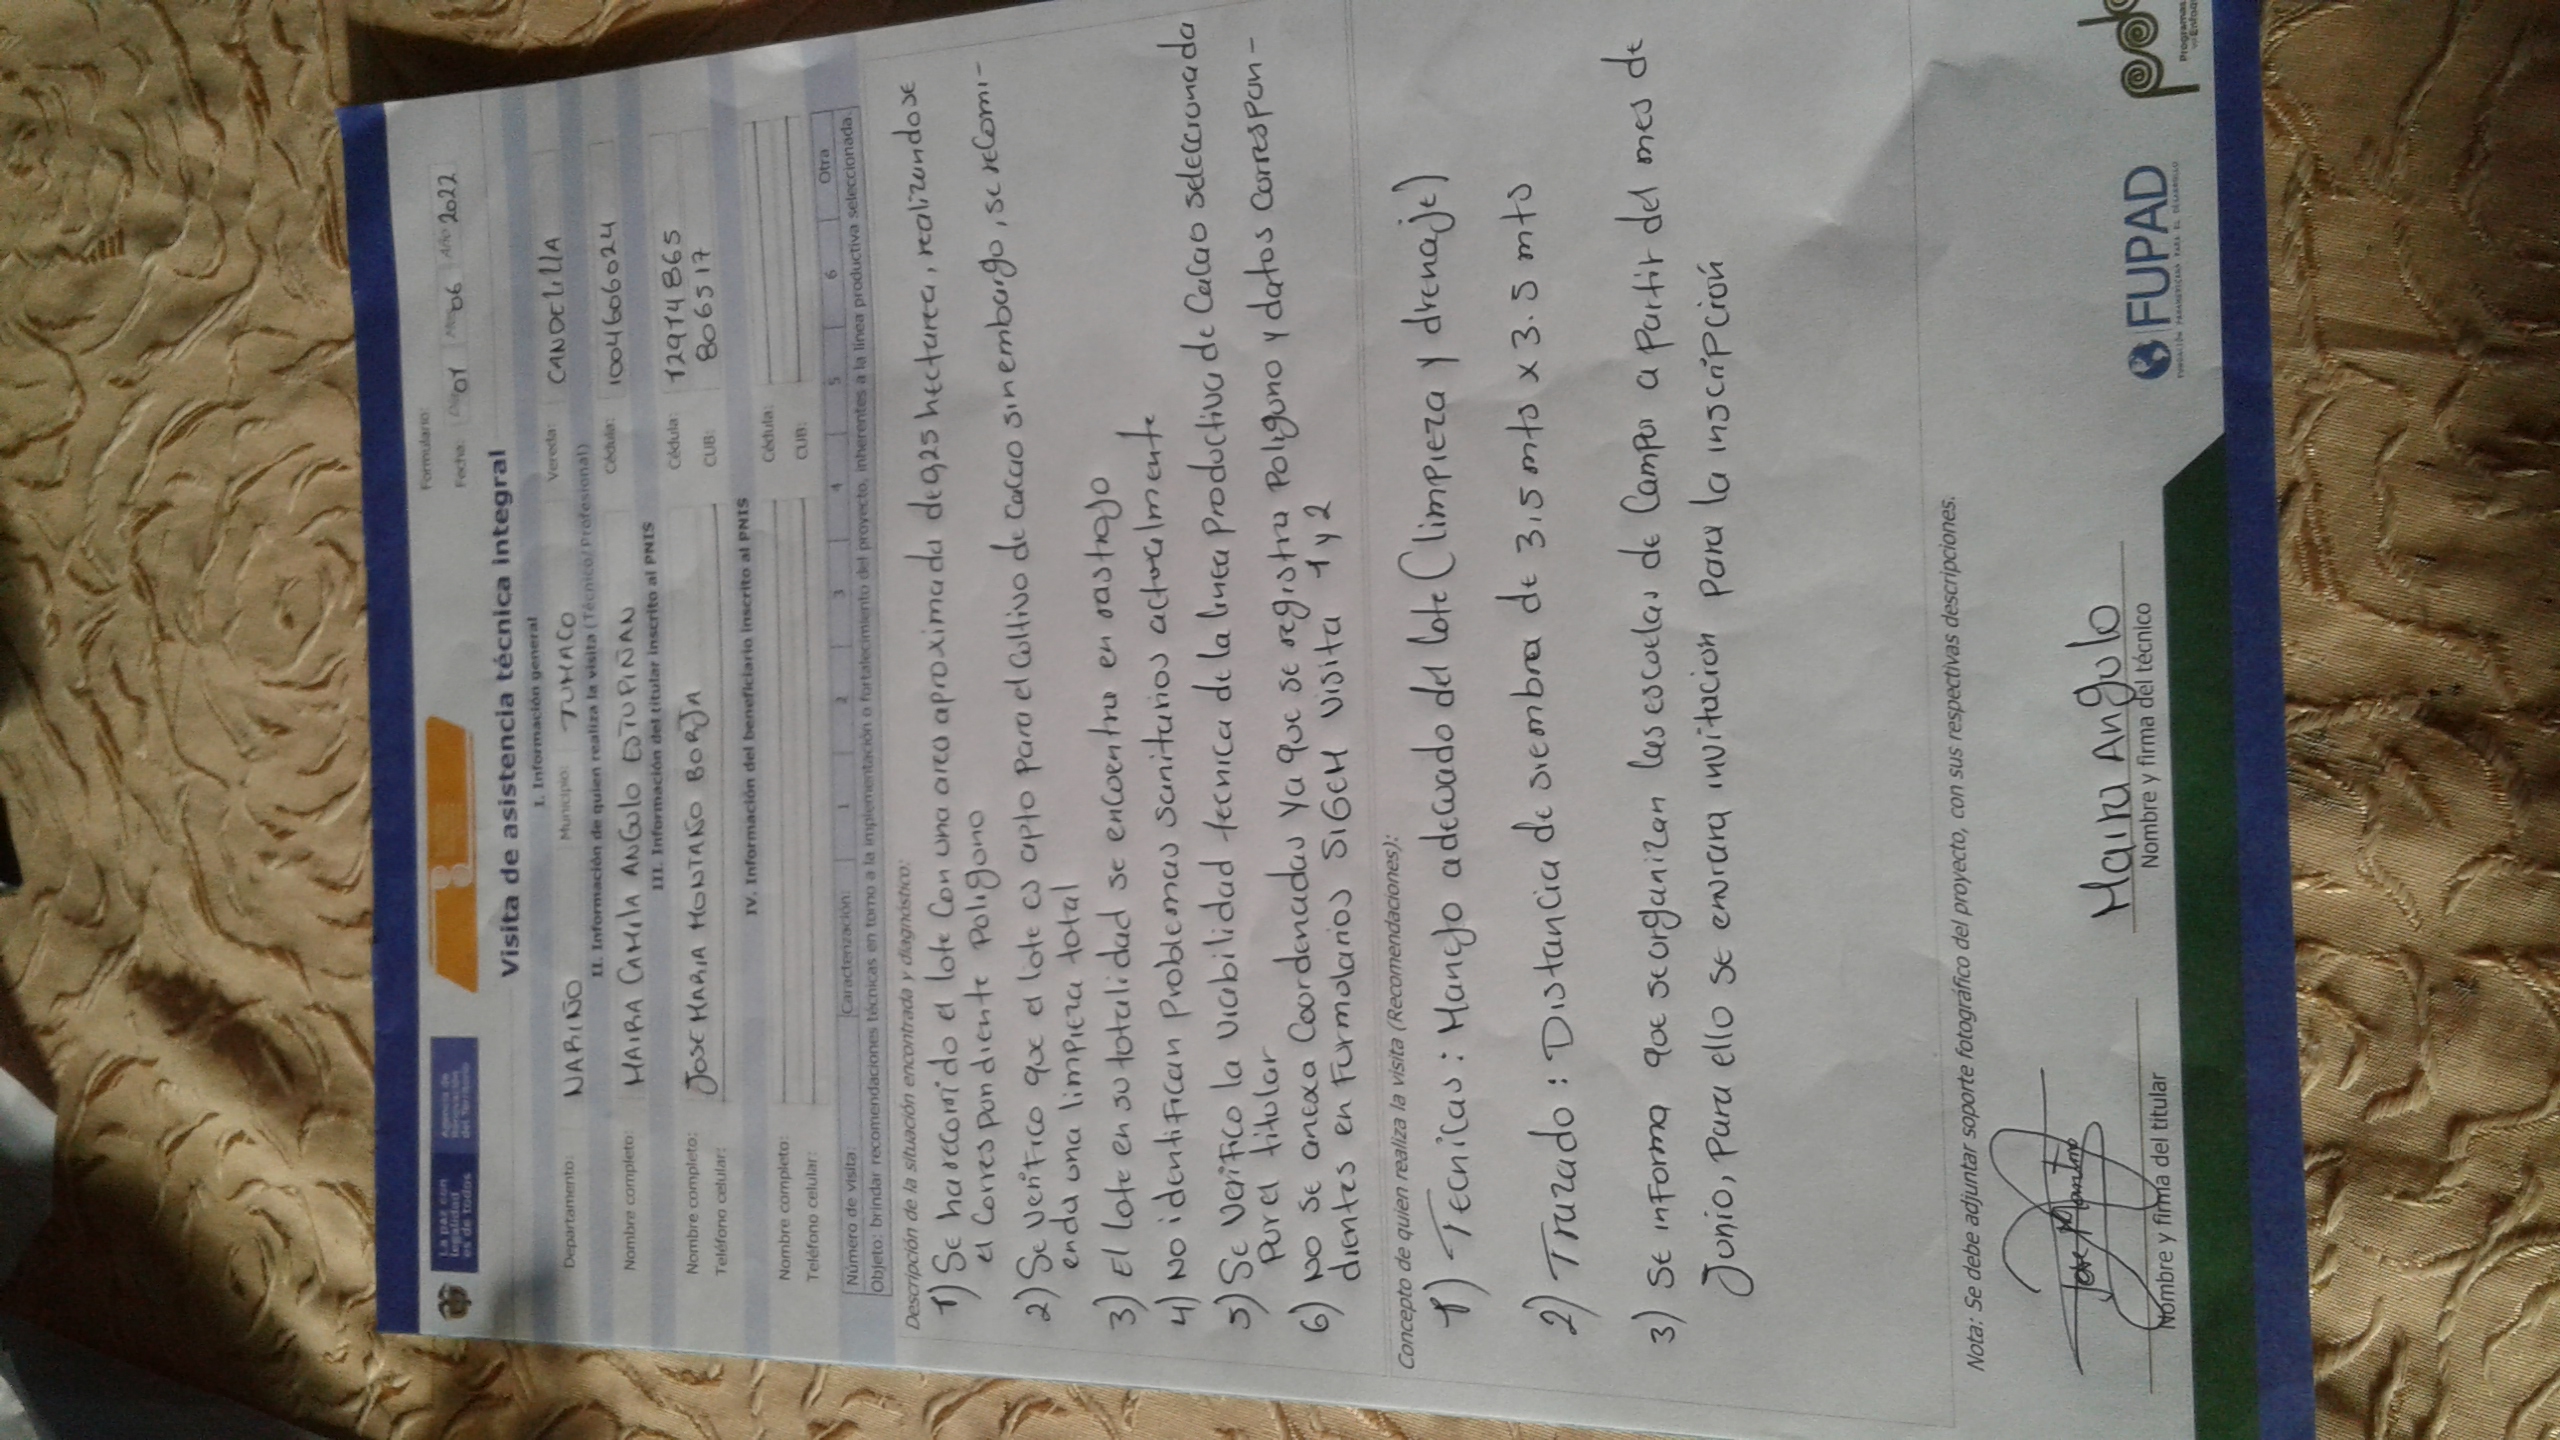 La paz con legalidad es de todos
Agencia de Renovación del Territorio
Formulario:
Fecha: Día 01 Mes 06 Año 2022
Visita de asistencia técnica integral
I. Información general
Departamento: NARIÑO Municipio: TUMACO Vereda: CANDELILLA
II. Información de quien realiza la visita (Técnico/Profesional)
Nombre completo: MAIRA CAMILA ANGULO ESTUPIÑAN Cédula: 1004606024
III. Información del titular inscrito al PNIS
Nombre completo: JOSE MARIA MONTAÑO BORJA Cédula: 12914865
Teléfono celular: CUB: 806517
IV. Información del beneficiario inscrito al PNIS
Nombre completo: Cédula:
Teléfono celular: CUB:
Número de visita: Caracterización: 1 2 3 4 5 6 Otra
Objeto: brindar recomendaciones técnicas en torno a la implementación o fortalecimiento del proyecto, inherentes a la línea productiva seleccionada.
Descripción de la situación encontrada y diagnóstico:
1) Se ha recorrido el lote Con una area aproximada de 0,25 hectarea, realizandose
el Correspondiente Poligono
2) Se verifico que el lote es apto Para el Cultivo de Cacao sin embargo, se recomi-
enda una limpieza total
3) El lote en su totalidad se encuentra en rastrojo
4) No identifican Problemas sanitarios actualmente
5) Se verifico la viabilidad tecnica de la linea Productiva de Cacao seleccionada
Por el titular
6) No se anexa Coordenadas Ya que se registra Poligono y datos Correspon-
dientes en Formularios SIGEH Visita 1 y 2
Concepto de quien realiza la visita (Recomendaciones):
1) Tecnicas: Manejo adecuado del lote (limpieza y drenaje)
2) Trazado: Distancia de siembra de 3.5 mts x 3.5 mts
3) Se informa que se organizan las escuelas de Campo a Partir del mes de
Junio, Para ello se enrara invitacion Para la inscripción
Nota: Se debe adjuntar soporte fotográfico del proyecto, con sus respectivas descripciones.
Maira Angulo
Nombre y firma del titular
Nombre y firma del técnico
FUPAD
FUNDACIÓN PANAMERICANA PARA EL DESARROLLO
Programas